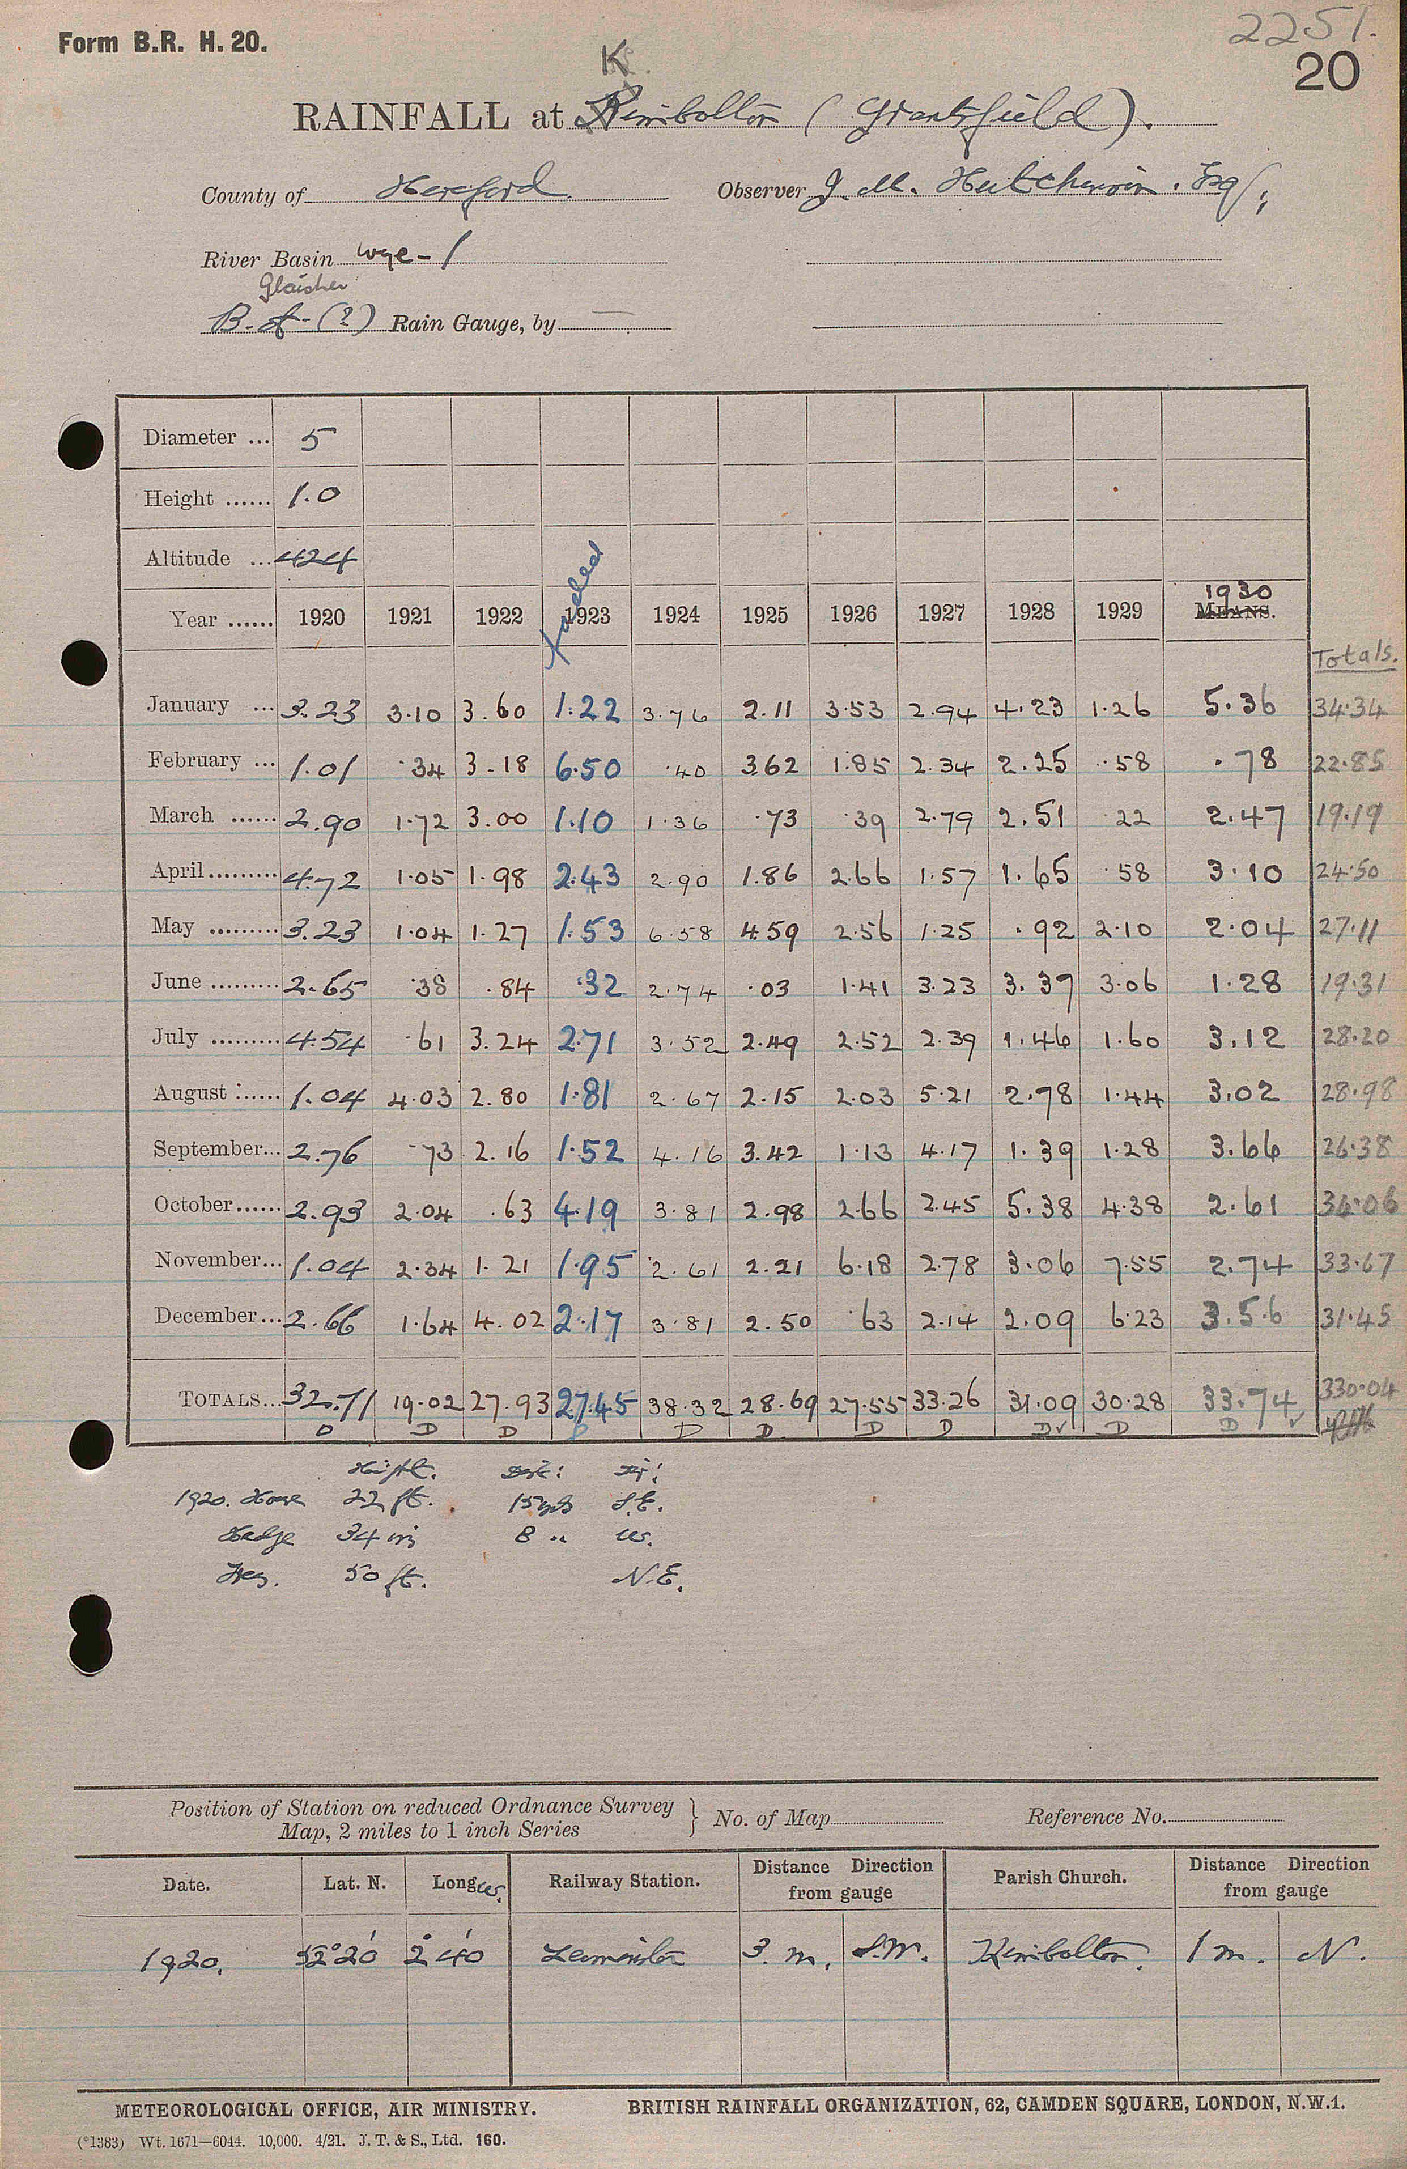 2251.
Form B.R. H. 20.
20
K
RAINFALL at Kimbolton (Grantsfield).
County of Hereford. Observer J. M. Hutchinson. Esq;
River Basin Wye - 1
Glaisher
B.A- (?) Rain Gauge, by —
Diameter ... 5
Height ...... 1.0
Altitude ... 424
traced
1930
Year ...... 1920 1921 1922 1923 1924 1925 1926 1927 1928 1929 MEANS.
Totals.
January ... 3.23 3.10 3.60 1.22 3.76 2.11 3.53 2.94 4.23 1.26 5.36 34.34
February ... 1.01 .34 3.18 6.50 .40 3.62 1.85 2.34 2.25 .58 .78 22.85
March ...... 2.90 1.72 3.00 1.10 1.36 .73 .39 2.79 2.51 .22 2.47 19.19
April......... 4.72 1.05 1.98 2.43 2.90 1.86 2.66 1.57 1.65 .58 3.10 24.50
May ......... 3.23 1.04 1.27 1.53 6.58 4.59 2.56 1.25 .92 2.10 2.04 27.11
June ......... 2.65 .38 .84 .32 2.74 .03 1.41 3.23 3.37 3.06 1.28 19.31
July ......... 4.54 .61 3.24 2.71 3.52 2.49 2.52 2.39 1.46 1.60 3.12 28.20
August ...... 1.04 4.03 2.80 1.81 2.67 2.15 2.03 5.21 2.78 1.44 3.02 28.98
September... 2.76 .73 2.16 1.52 4.16 3.42 1.13 4.17 1.39 1.28 3.66 26.38
October...... 2.93 2.04 .63 4.19 3.81 2.98 2.66 2.45 5.38 4.38 2.61 34.06
November... 1.04 2.34 1.21 1.95 2.61 2.21 6.18 2.78 3.06 7.55 2.74 33.67
December... 2.66 1.64 4.02 2.17 3.81 2.50 .63 2.14 2.09 6.23 3.56 31.45
TOTALS... 32.71 19.02 27.93 27.45 38.32 28.69 27.55 33.26 31.09 30.28 33.74 330.04
D D D D D D D D D✓ D D ✓
Height. Dist: Dir:
1920. House 22 ft. 15yds S.E.
Hedge 34 ins 8 " W.
Trees. 50 ft. N.E.
Position of Station on reduced Ordnance Survey
Map, 2 miles to 1 inch Series } No. of Map Reference No.
Date. Lat. N. Long W. Railway Station. Distance Direction from gauge Parish Church. Distance Direction from gauge
1920. 52° 20' 2° 40' Leominster 3 m. S.W. Kimbolton. 1 m. N.
METEOROLOGICAL OFFICE, AIR MINISTRY. BRITISH RAINFALL ORGANIZATION, 62, CAMDEN SQUARE, LONDON, N.W.1.
(*1383) Wt. 1671—6044. 10,000. 4/21. J. T. & S., Ltd. 160.